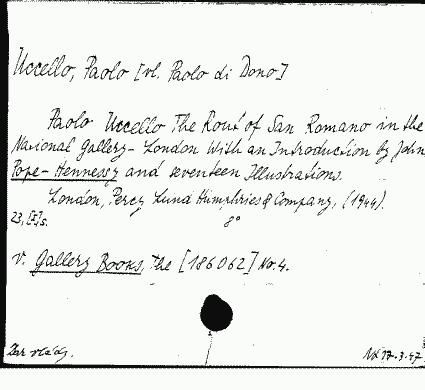 Uccello, Paolo [vl. Paolo di Dono]
Paolo Uccello The Rout of San Romano in the
National Gallery - London With an Introduction by John
Pope-Hennessy and seventeen Illustrations.
London, Percy Lund Humphries & Company, (1944).
23, [I] s. 8°
v. Gallery Books, The [186062] No. 4.